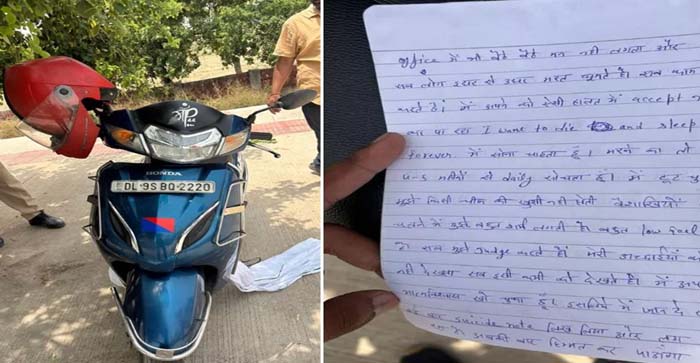 HONDA
DL 9S BQ 2220
office में भी बैठे बैठे मन नहीं लगता और
सब लोग इधर से उधर मस्त घूमते हैं। सब काम
करते हैं। मैं अपने को ऐसी हालत में accept न
पा रहा I want to die and sleep
forever में सोना चाहता हूँ। मरने का तो
4-5 महीनों से daily सोचता हूँ। मैं टूट
मुझे किसी चीज की खुशी नहीं होती बैसाखियों
चलने में मुझे बहुत शर्म लगती है। बहुत low feel
सब मुझे Judge करते हैं। मेरी अच्छाईयां
नहीं देखता सब इसी कमी को देखते हैं। मैं
खो चुका हूँ। इसलिये मैं
बार suicide note लिख लिया और
बार हिम्मत कर पाऊंगा